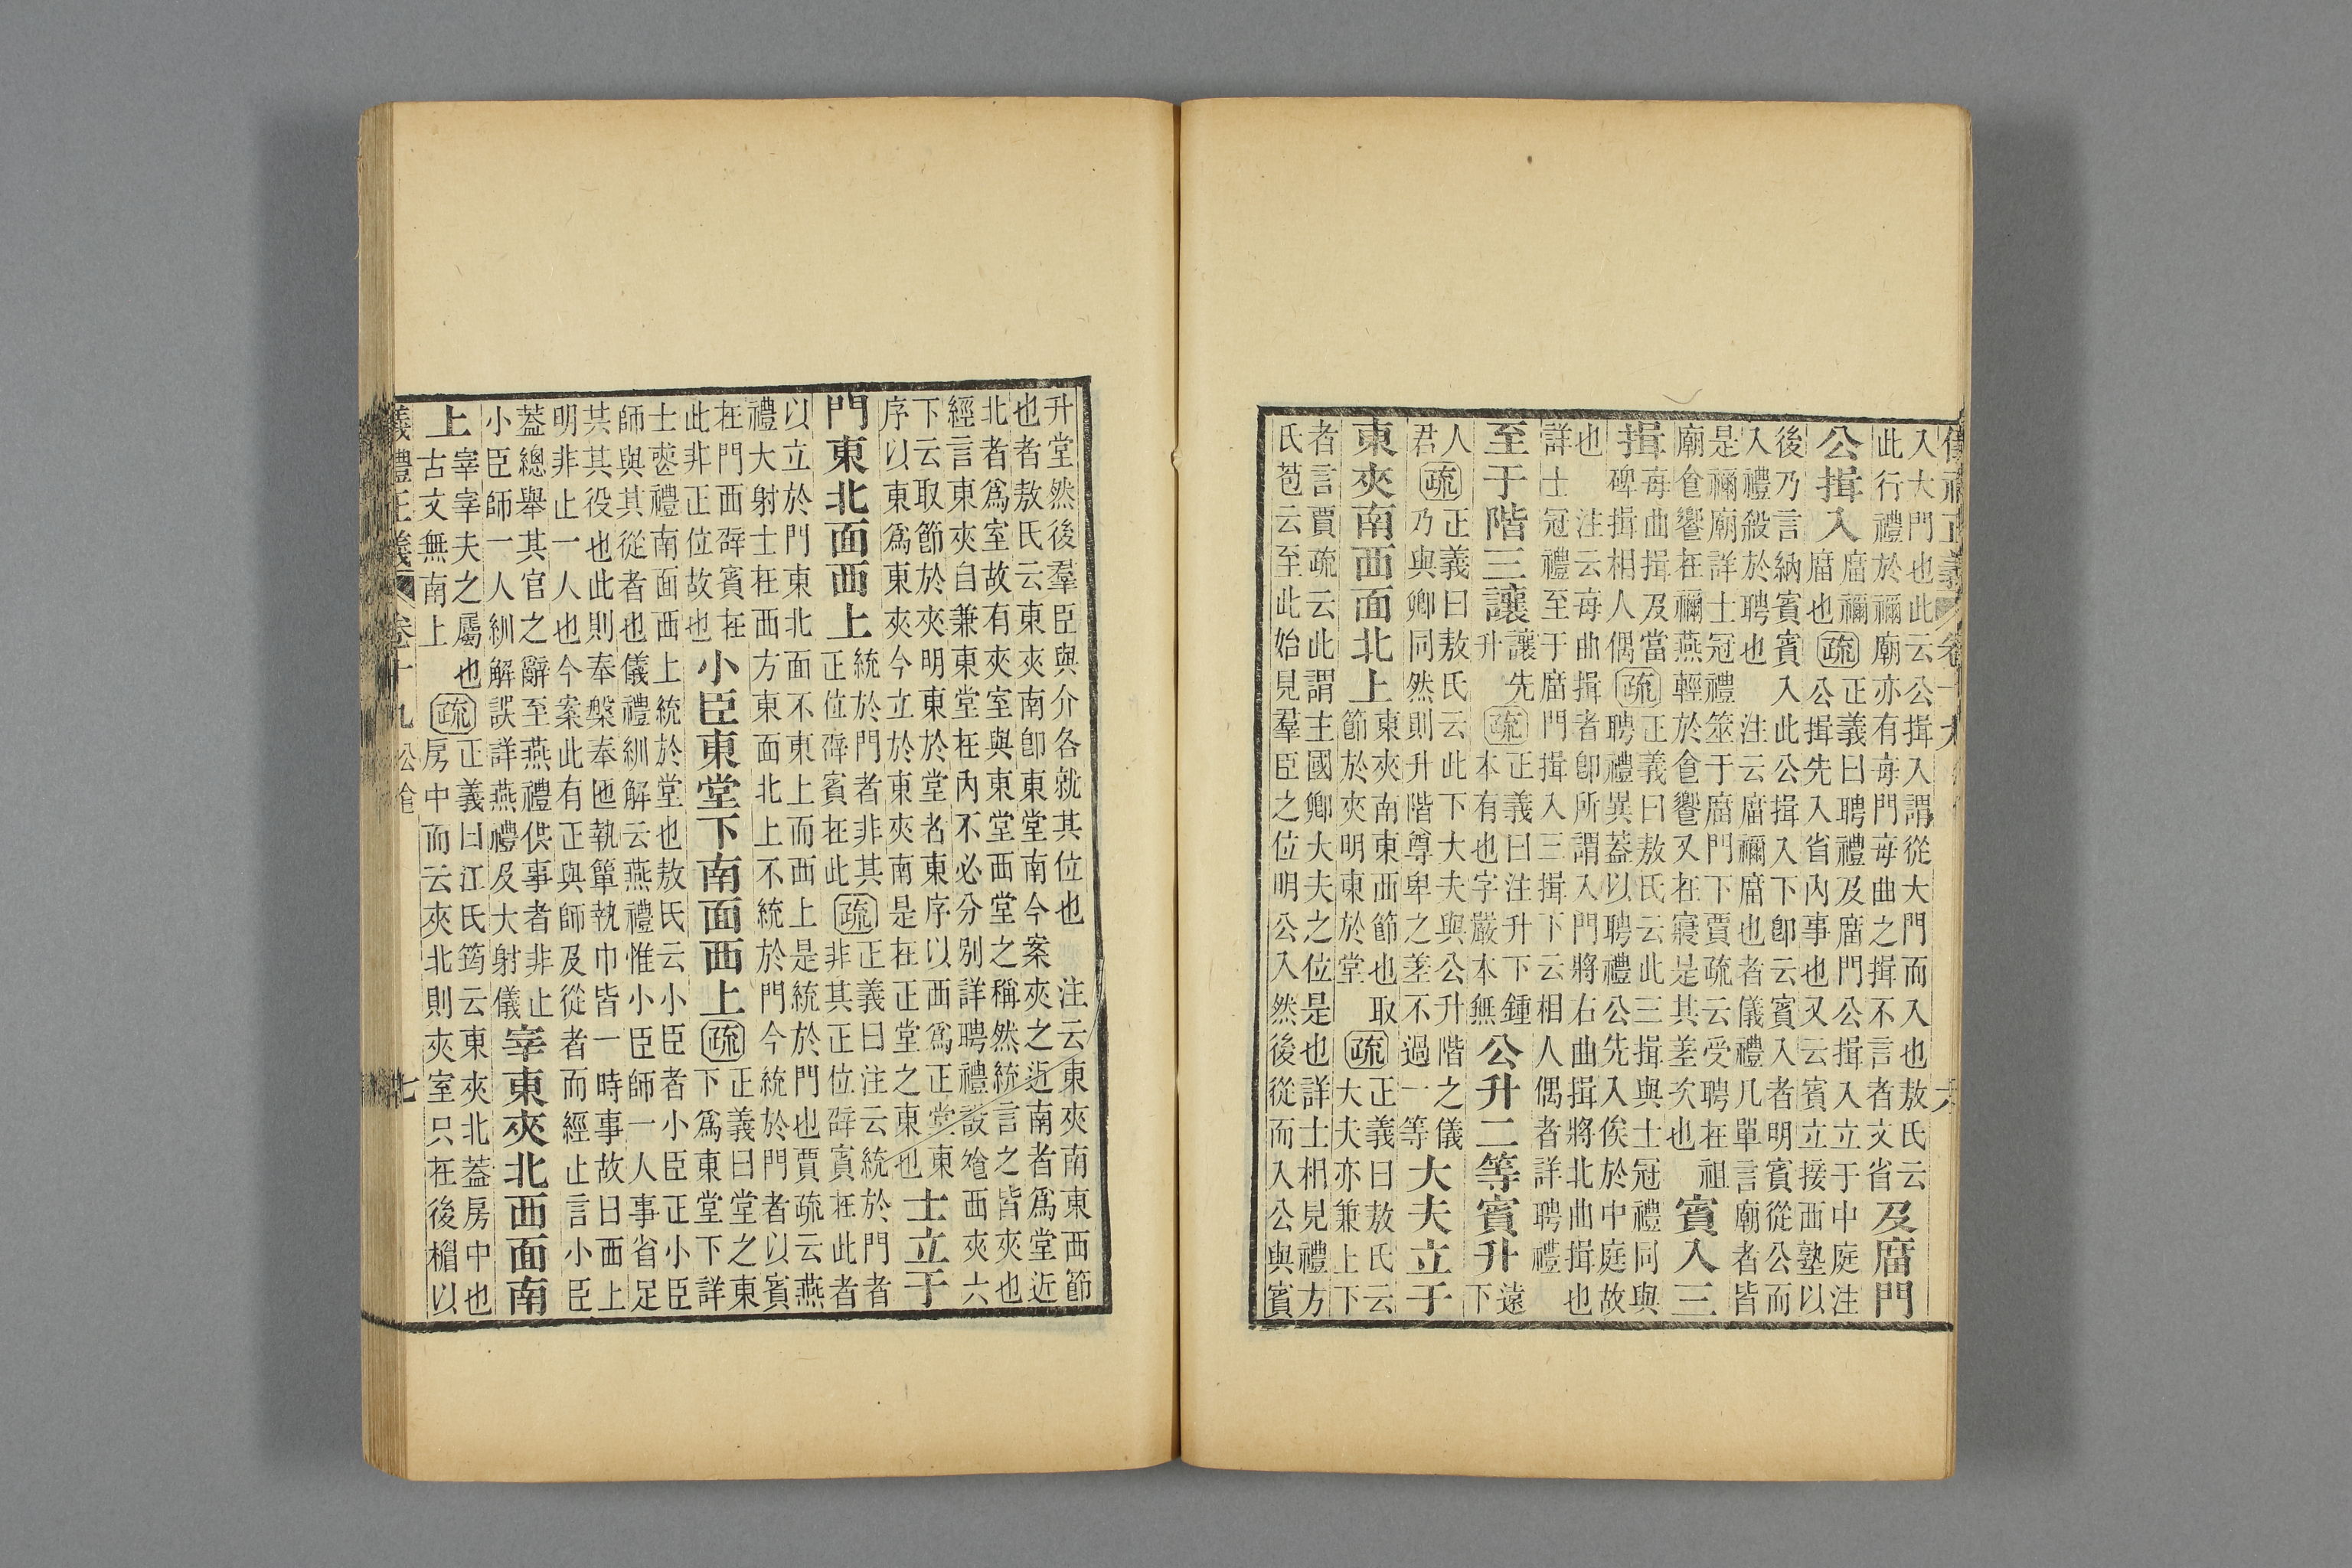 儀禮正義 卷十九 公食 六
入大門也此云公揖入謂從大門而入也敖氏云
此行禮於禰廟亦有每門每曲之揖不言者文省
及廟門
公揖入
廟禰
廟也
疏
正義曰聘禮及廟門公揖入立于中庭注
公揖先入省內事也又云賓立接西塾以
後乃言納賓賓入此公揖入下卽云賓入者明賓從公而
入禮殺於聘也 注云廟禰廟也者儀禮几單言廟者皆
是禰廟詳士冠禮筮于廟門下賈疏云受聘在祖
廟食饗在禰燕輕於食饗又在寢是其差次也
賓入三
揖
每曲揖及當
碑揖相人偶
疏
正義曰敖氏云此三揖與士冠禮同與
聘禮異蓋以聘禮公先入俟於中庭故
也 注云每曲揖者卽所謂入門將右曲揖將北曲揖也
詳士冠禮至于廟門揖入三揖下云相人偶者詳聘禮
至于階三讓
讓先
升
疏
正義曰注升下鍾
本有也字嚴本無
公升二等賓升
遠
下
人
君
疏
正義曰敖氏云此下大夫與公升階之儀
乃與卿同然則升階尊卑之差不過一等
大夫立于
東夾南西面北上
東夾南東西節也取
節於夾明東於堂
疏
正義曰敖氏云
大夫亦兼上下
者言賈疏云此謂主國卿大夫之位是也詳士相見禮方
氏苞云至此始見羣臣之位明公入然後從而入公與賓
升堂然後羣臣與介各就其位也 注云東夾南東西節
也者敖氏云東夾南卽東堂南今案夾之近南者爲堂近
北者爲室故有夾室與東堂西堂之稱然統言之皆夾也
經言東夾自兼東堂在內不必分別詳聘禮設飧西夾六
下云取節於夾明東於堂者東序以西爲正堂東
序以東爲東夾今立於東夾南是在正堂之東也
士立于
門東北面西上
統於門者非其
正位辟賓在此
疏
正義曰注云統於門者
非其正位辟賓在此者
以立於門東北面不東上而西上是統於門也賈疏云燕
禮大射士在西方東面北上不統於門今統於門者以賓
在門西辟賓在
此非正位故也
小臣東堂下南面西上
疏
正義曰堂之東
下爲東堂下詳
士喪禮南面西上統於堂也敖氏云小臣者小臣正小臣
師與其從者也儀禮紃解云燕禮惟小臣師一人事省足
共其役也此則奉槃奉匜執簞執巾皆一時事故曰西上
明非止一人也今案此有正與師及從者而經止言小臣
蓋總舉其官之辭至燕禮供事者非止
小臣師一人紃解誤詳燕禮及大射儀
宰東夾北西面南
上
宰宰夫之屬也
古文無南上
疏
正義曰江氏筠云東夾北蓋房中也
房中而云夾北則夾室只在後楣以
儀禮正義 卷十九 公食 七